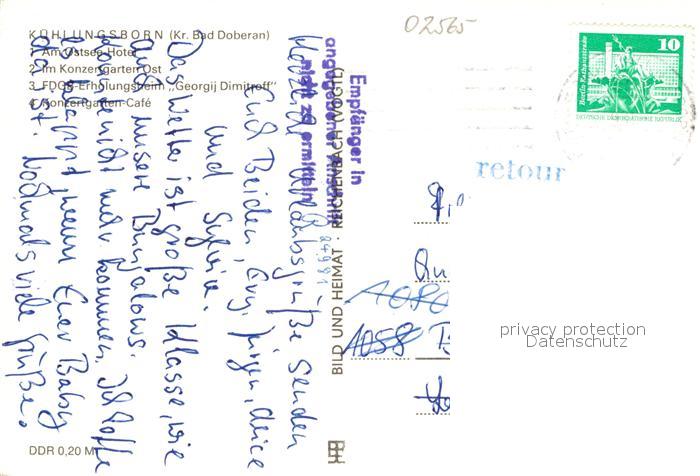 02565
KÜHLUNGSBORN (Kr. Bad Doberan)
1 Am Ostsee-Hotel
2 Im Konzertgarten Ost
3 FDGB-Erholungsheim „Georgij Dimitroff"
4 Konzertgarten-Café
Herzliche Urlaubsgrüße senden
Euch Beiden, Evy, Jürgen, Alice
und Sylvia.
Das Wetter ist große Klasse, wie
auch unsere Bungalows.
Ich hoffe
es klappt wenn Euer Baby
da ist. Nochmals viele Grüße.
Empfänger in
angegebener
nicht zu ermitteln
BILD UND HEIMAT · REICHENBACH (VOGTL)
retour
10
Berlin, Rathausstraße
DEUTSCHE DEMOKRATISCHE REPUBLIK
1080
1058
privacy protection
Datenschutz
DDR 0,20 M